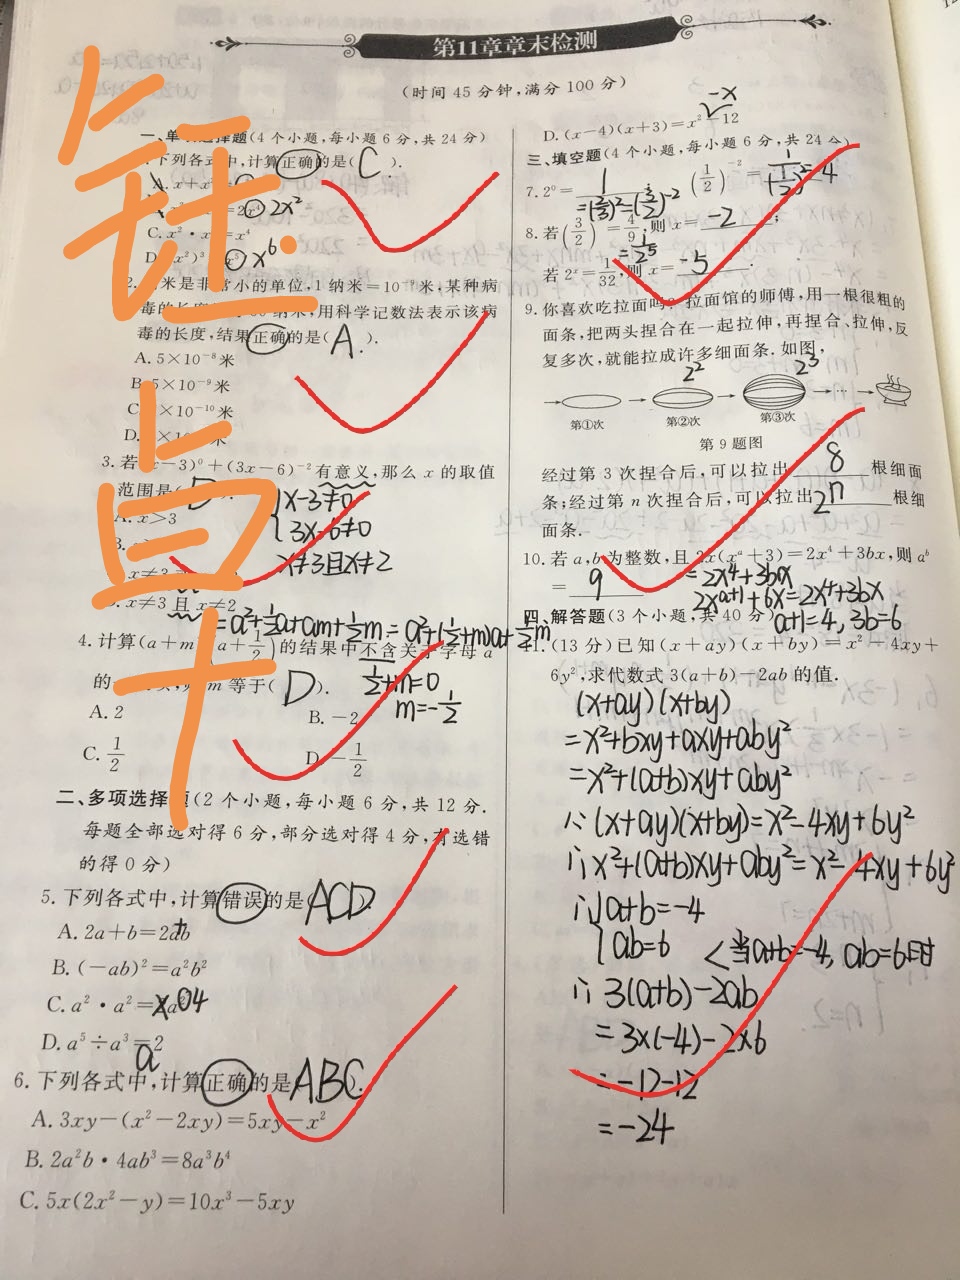 第11章章末检测
(时间 45 分钟,满分 100 分)
一、单 选择题(4 个小题,每小题 6 分,共 24 分)
下列各式中,计算正确的是( C ).
2x²
C. x²·x =x⁴
x⁶
米是非常小的单位,1 纳米=10⁻⁹米,某种病
纳米,用科学记数法表示该病
毒的长度,结果正确的是( A ).
A. 5×10⁻⁸米
B. 5×10⁻⁹米
×10⁻¹⁰米
3. 若 -3)⁰+(3x-6)⁻²有意义,那么 x 的取值
范围是( D
A. x>3
x≠3 且 x≠2
{x-3≠0
3x-6≠0
x≠3且x≠2
=a²+½a+am+½m=a²+(½+m)a+½m
4. 计算(a+m a+1/2)的结果中不含关于字母 a
的 m 等于( D ).
½+m=0
m=-½
A. 2
B. -2
C. 1/2
D. -1/2
二、多项选择题(2 个小题,每小题 6 分,共 12 分.
每题全部选对得 6 分,部分选对得 4 分,有选错
的得 0 分)
5. 下列各式中,计算错误的是 ACD
A. 2a+b=2ab
B. (-ab)²=a²b²
C. a²·a²= a4
D. a⁵÷a³=2
a
6. 下列各式中,计算正确的是 ABC
A. 3xy-(x²-2xy)=5xy-x²
B. 2a²b·4ab³=8a³b⁴
C. 5x(2x²-y)=10x³-5xy
-x
D. (x-4)(x+3)=x²-12
三、填空题(4 个小题,每小题 6 分,共 24 分)
7. 2⁰= 1 (1/2)⁻²= 1/(1/2)²=4
=(2/3)²=(3/2)⁻²
8. 若(3/2) =4/9,则 x= -2 ;
=1/2⁵
若 2ˣ=1/32,则 x= -5 .
9. 你喜欢吃拉面吗? 拉面馆的师傅,用一根很粗的
面条,把两头捏合在一起拉伸,再捏合、拉伸,反
复多次,就能拉成许多细面条. 如图,
2² 2³
第①次 第②次 第③次
第 9 题图
经过第 3 次捏合后,可以拉出 8 根细面
条;经过第 n 次捏合后,可以拉出 2ⁿ 根细
面条.
10. 若 a,b 为整数,且 2x(xᵃ+3)=2x⁴+3bx,则 aᵇ
= 9
=2x⁴+3bx
2xᵃ⁺¹+6x=2x⁴+3bx
a+1=4, 3b=6
四、解答题(3 个小题,共 40 分)
11. (13 分)已知(x+ay)(x+by)=x²-4xy+
6y²,求代数式 3(a+b)-2ab 的值.
(x+ay)(x+by)
=x²+bxy+axy+aby²
=x²+(a+b)xy+aby²
∵(x+ay)(x+by)=x²-4xy+6y²
∴x²+(a+b)xy+aby²=x²-4xy+6y²
∴{a+b=-4
ab=6 <当a+b=-4, ab=6时
∴3(a+b)-2ab
=3×(-4)-2×6
=-12-12
=-24